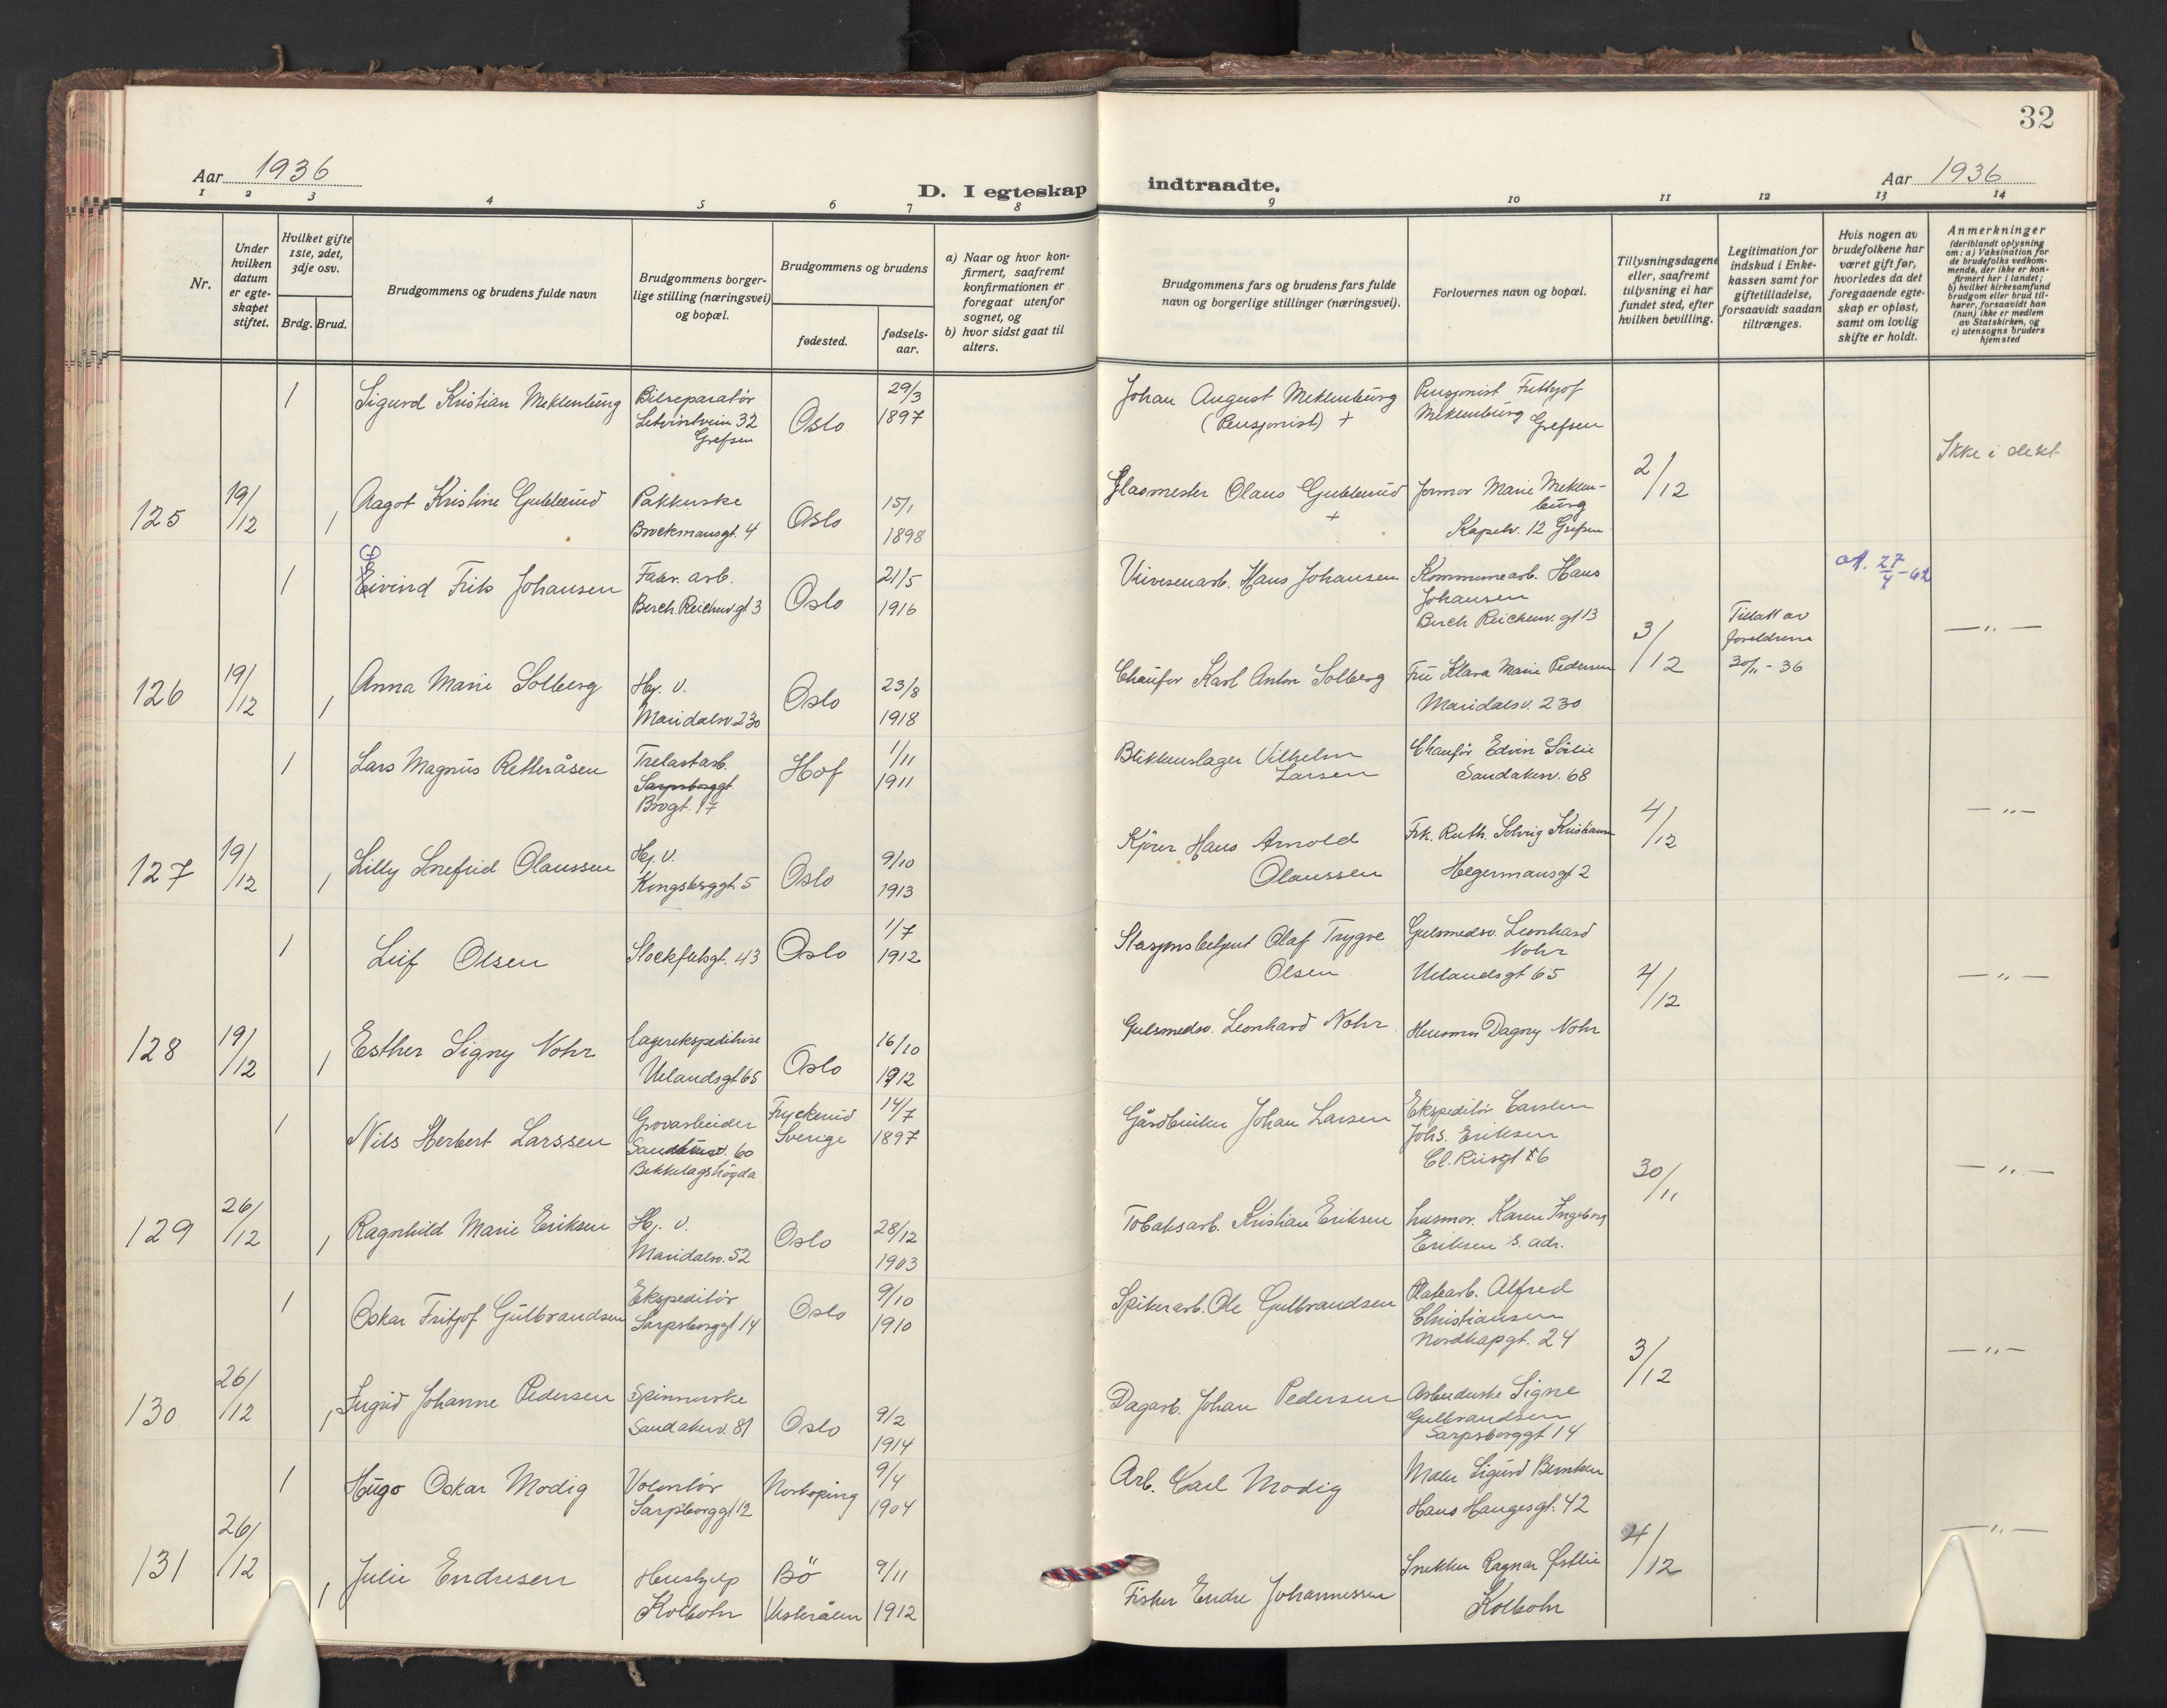 32
Aar 1936
D. I egteskap indtraadte.
Aar 1936
1 2 3 4 5 6 7 8 9 10 11 12 13 14
Nr.
Under hvilken datum er egteskapet stiftet.
Hvilket gifte 1ste, 2det, 3dje osv.
Brdg. Brud.
Brudgommens og brudens fulde navn
Brudgommens borgerlige stilling (næringsvei) og bopæl.
Brudgommens og brudens
fødested.
fødselsaar.
a) Naar og hvor konfirmert, saafremt konfirmationen er foregaat utenfor sognet, og
b) hvor sidst gaat til alters.
Brudgommens fars og brudens fars fulde navn og borgerlige stillinger (næringsvei).
Forlovernes navn og bopæl.
Tillysningsdagene eller, saafremt tillysning ei har fundet sted, efter hvilken bevilling.
Legitimation for indskud i Enkekassen samt for giftetilladelse, forsaavidt saadan tiltrænges.
Hvis nogen av brudefolkene har været gift før, hvorledes da det foregaaende egteskap er opløst, samt om lovlig skifte er holdt.
Anmerkninger
(deriblandt oplysning om: a) Vaksination for de brudefolks vedkommende, der ikke er konfirmert her i landet; b) hvilket kirkesamfund brudgom eller brud tilhører, forsaavidt han (hun) ikke er medlem av Statskirken, og c) utensogns bruders hjemsted
1 Sigurd Kristian Meklenburg Bilreparatør 32 Grefsen Oslo 29/3 1897 Johan August Meklenburg (Pensjonist) + Pensjonist Fritkjof Meklenburg Grefsen
125 19/12 1 Aagot Kristine Gubberud Pakkerske Brockmansgt. 4 Oslo 15/1 1898 Glasmester Olaus Gubberud + Formor Marie Meklenburg Kapelv. 12 Grefsen 2/12 Ikke i slekt
1 Eivind Frits Johansen Fabr. arb. Berch. Reichenw.gt 3 Oslo 21/5 1916 Hans Johansen Kommunearb. Hans Johansen Berch Reichenw. gt 13
126 19/12 1 Anna Marie Solberg Hj. v. Maridalsv. 230 Oslo 23/8 1918 Chaufør Karl Anton Solberg Fru Klara Marie Pedersen Maridalsv. 230 3/12 Tillatt av foreldrene 30/11 - 36 27/4 - 62 — „ —
1 Lars Magnus Retteråsen Trelastarb. Sarpsborggt. Brogt. 17 Hof 1/11 1911 Blikkenslager Vilhelm Larsen Chaufør Edvin Sørlie Sandakerv. 68
127 19/12 1 Lilly Snefrid Olaussen Hj. v. Kongsberggt. 5 Oslo 9/10 1913 Kjører Hans Arnold Olaussen Frk. Ruth Solveig Kristiansen Hegermansgt 2 4/12 — „ —
1 Leif Olsen Stockfletsgt. 43 Oslo 1/7 1912 Stasjonsbetjent Olaf Trygve Olsen Gulsmedsv. Leonhard Nohr Uelandsgt 65
128 19/12 1 Esther Signy Nohr Lagerekspeditrise Uelandsgt 65 Oslo 16/10 1912 Gulsmedsv. Leonhard Nohr Husmor Dagny Nohr 4/12 — „ —
1 Nils Herbert Larssen Grovarbeider Sandakerv. 60 Bekkelagshøgda Fryckerud Sverige 14/7 1897 Gårdbruker Johan Larsen Ekspeditør Carsten Johs. Eriksen Cl. Riisgt 6
129 26/12 1 Ragnhild Marie Eriksen Hj. v. Maridalsv. 52 Oslo 28/12 1903 Tobaksarb. Kristian Eriksen husmor. Karen Ingeborg Eriksen s. adr. 30/11 — „ —
1 Oskar Fritjof Gulbrandsen Ekspeditør Sarpsborggt 14 Oslo 9/10 1910 Spikerarb. Ole Gulbrandsen Platearb. Alfred Christiansen Nordkapgt. 24
130 26/12 1 Ingrid Johanne Pedersen Spinnerske Sandakerv. 81 Oslo 9/2 1914 Dagarb. Johan Pedersen Arbeiderske Signe Gulbrandsen Sarpsborggt 14 3/12 — „ —
1 Hugo Oskar Modig Volontør Sarpsborggt 12 Norkøping 9/4 1904 Arb. Carl Modig Maler Sigurd Berntsen Hans Haugesgt. 42
131 26/12 1 Julie Endresen Hushjelp Kolbotn Bö Vesterålen 9/11 1912 Fisker Endre Johannessen Snekker Ragnar Østlie Kolbotn 4/12 — „ —